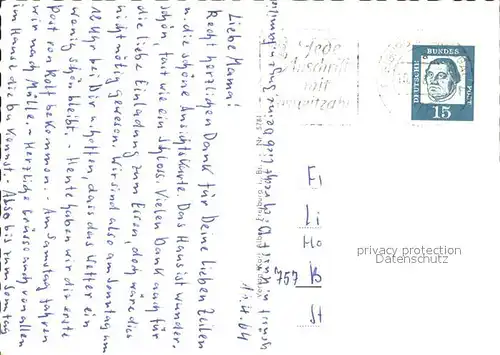 Liebe Mamai
Recht herzlichen Dank für Deine lieben Zeilen
u. die schöne Ansichtskarte. Das Haus ist wunder-
schön, fast wie ein Schloss. Vielen Dank auch für
die liebe Einladung zum Essen, doch wäre dies
nicht nötig gewesen. Wir sind also am Sonntag um
12 Uhr bei Dir u. hoffen, dass das Wetter ein
wenig schön bleibt. - Heute haben wir die erste
Post von Rolf bekommen. - Am Samstag fahren
wir nach Müllh. - Herzliche Grüsse auch von allen
im Hause die Du kennst. Also bis zum Sonntag
14.4.64
Jede
Anschrift
mit
Postleitzahl
DEUTSCHE
BUNDES
POST
15
Fi
Li
Ho
757 B
St
privacy protection
Datenschutz